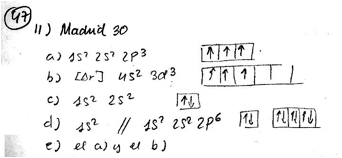 47
11) Madrid 30
a) 1s² 2s² 2p³ ↑ ↑ ↑
b) [Ar] 4s² 3d³ ↑ ↑ ↑
c) 1s² 2s² ↑↓
d) 1s² // 1s² 2s² 2p⁶ ↑↓ ↑↓ ↑↓ ↑↓
e) el a) y el b)